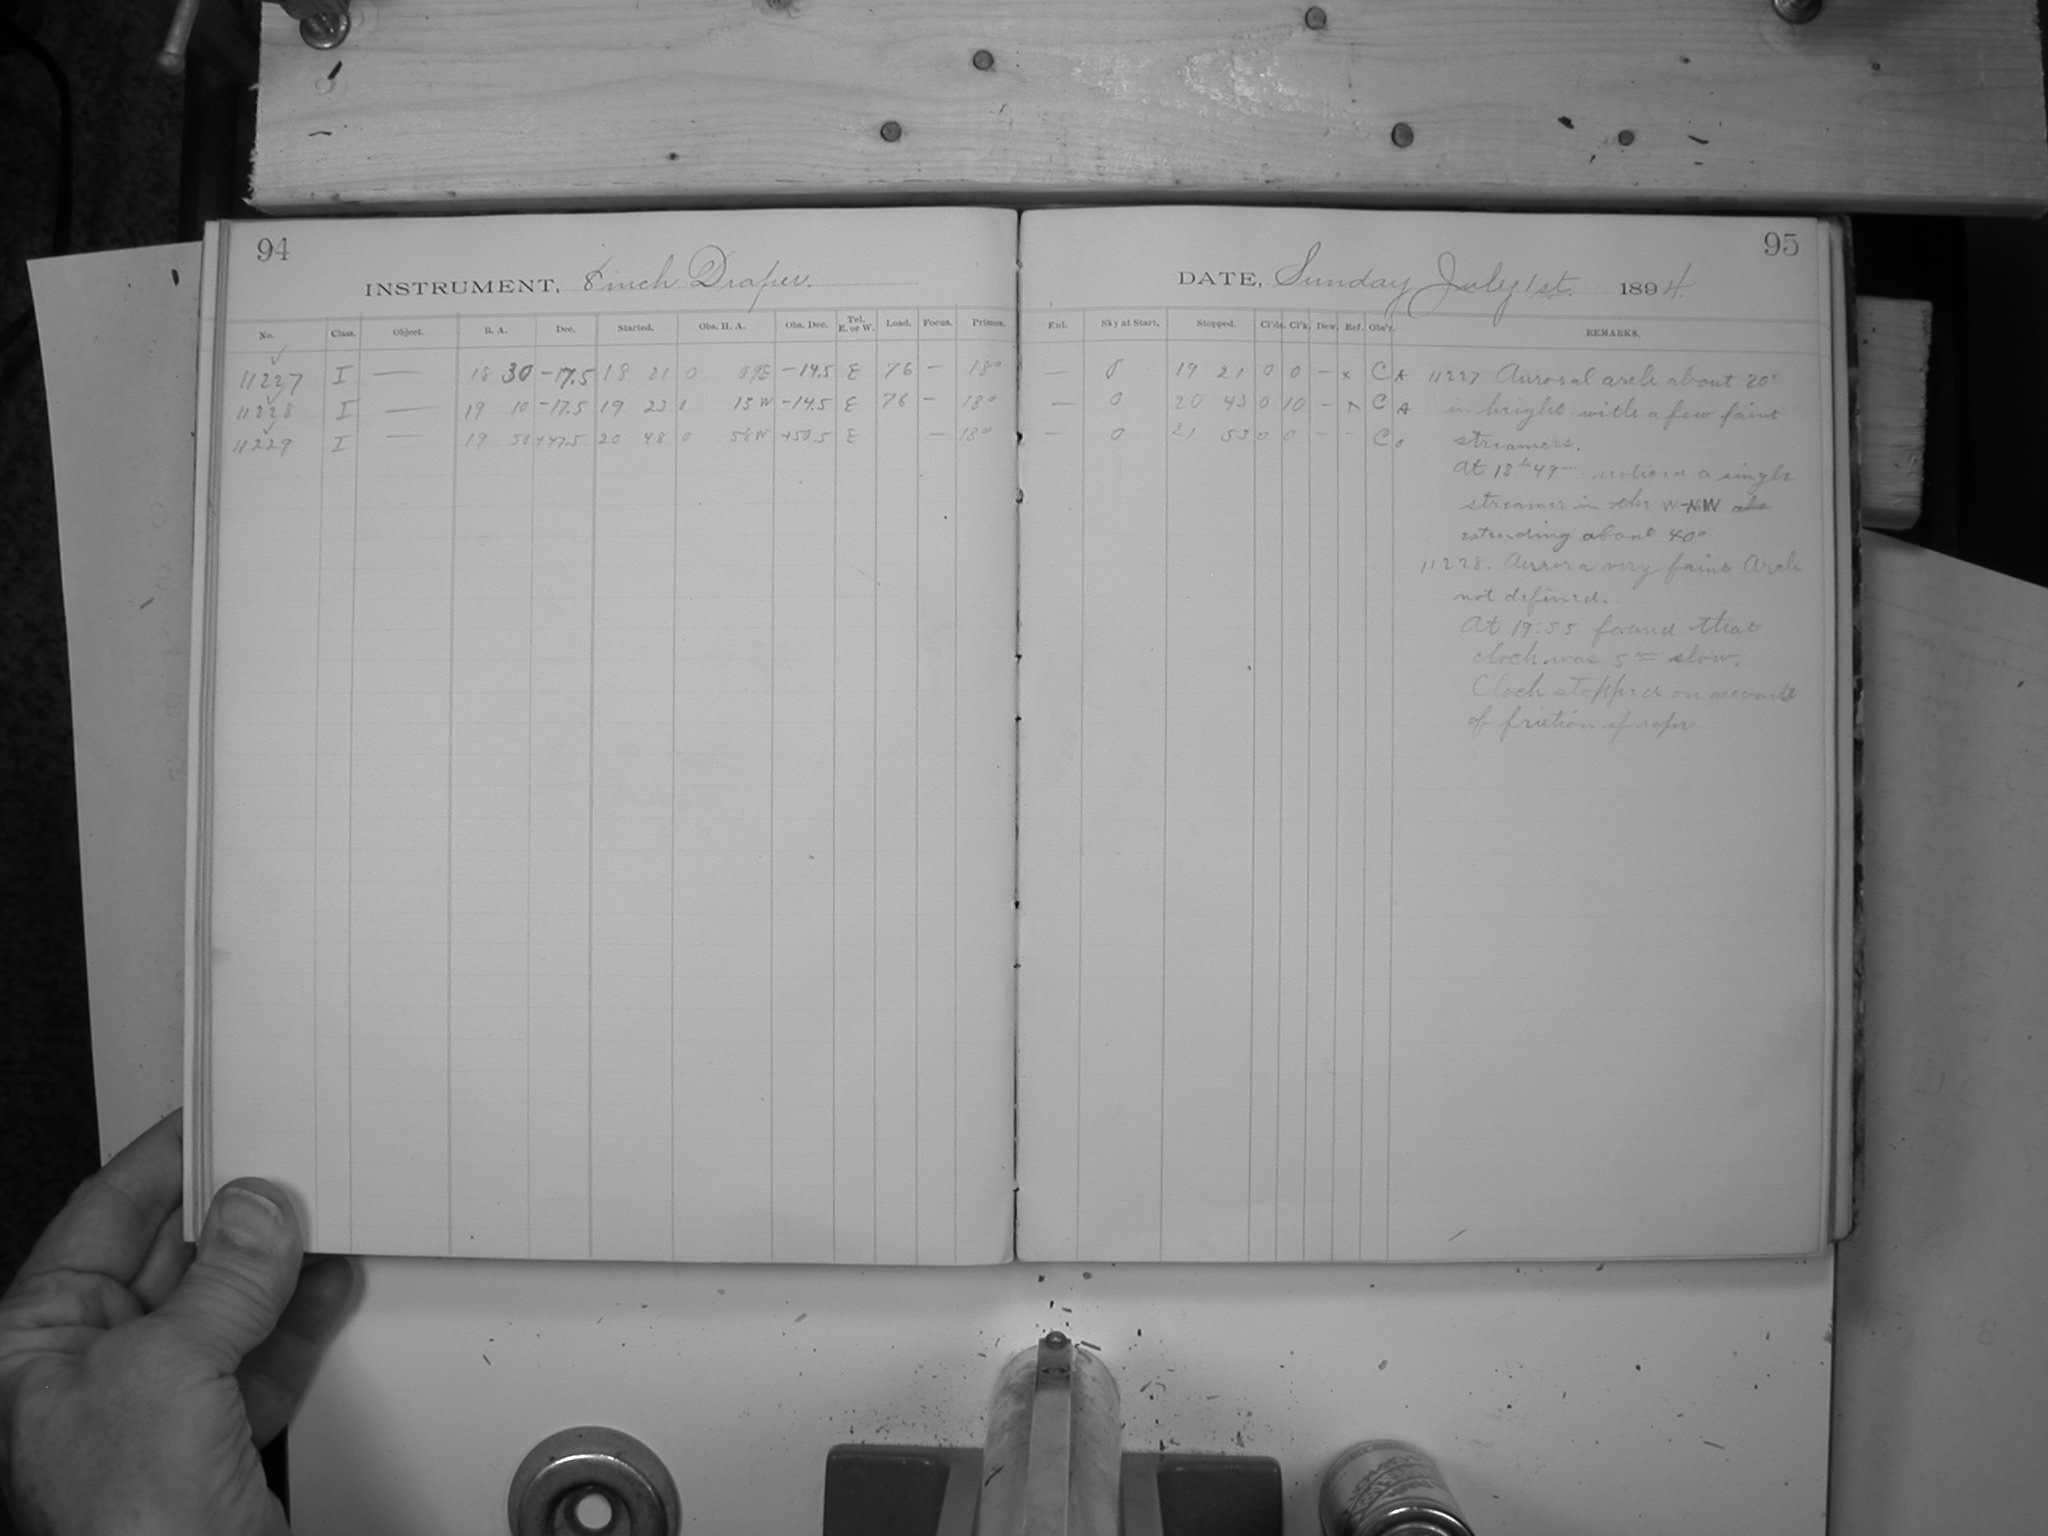 94
INSTRUMENT, 8 inch Draper.
No. Class. Object. R. A. Dec. Started. Obs. H. A. Obs. Dec. Tel. E. or W. Load. Focus. Primus.
11227 I — 18 30 -17.5 18 21 0 09E -14.5 E 76 - 18°
11228 I — 19 10 -17.5 19 23 0 13W -14.5 E 76 - 18°
11229 I — 19 50 +47.5 20 48 0 58W +50.5 E - 18°
95
DATE, Sunday July 1st. 1894
Ext. Sky at Start. Stopped. Cl'ds. Cl'k. Dew. Ref. Obs'r. REMARKS.
— 0 19 21 0 0 - x C A 11227 Auroral arch about 20°
— 0 20 43 0 10 - x C A in height with a few faint
— 0 21 53 0 0 - - C o streamers.
At 18h 49m noticed a single
streamer in the W-NW
extending about 40°
11228. Aurora very faint Arch
not defined.
At 19:55 found that
clock was 5m slow.
Clock stopped on account
of friction of rope.